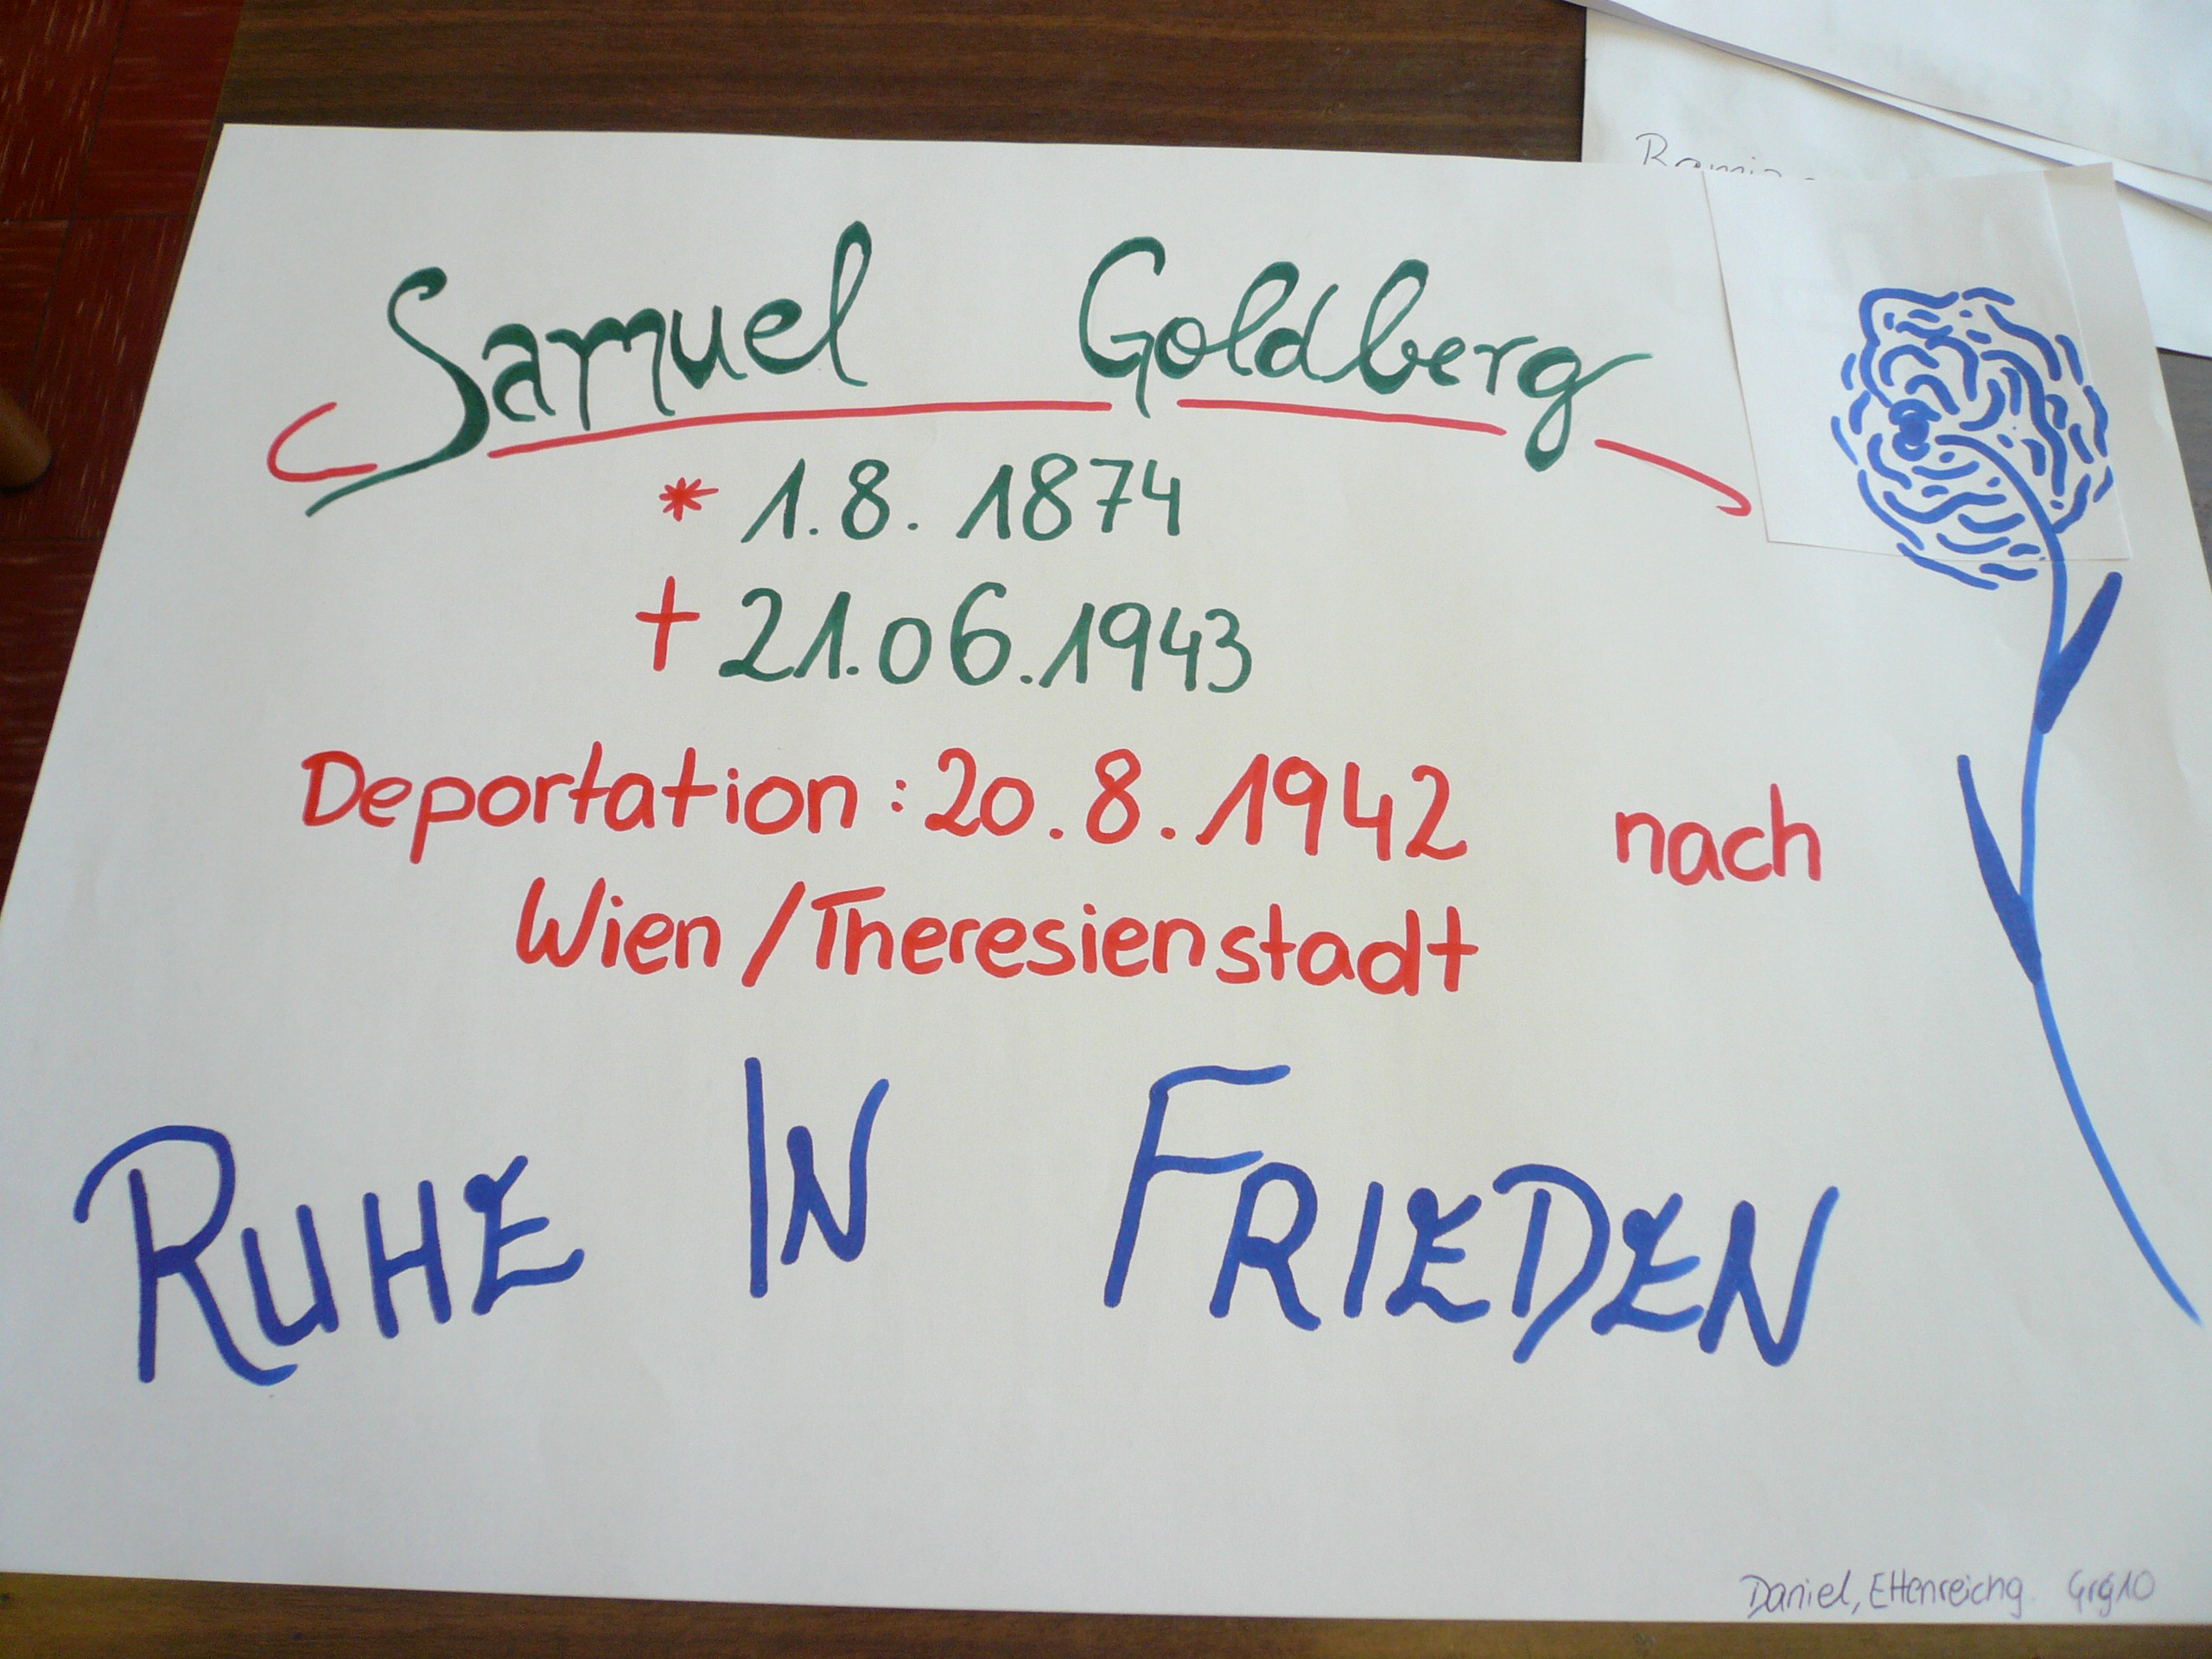 Samuel Goldberg
* 1.8.1874
† 21.06.1943
Deportation: 20.8.1942 nach
Wien/Theresienstadt
RUHE IN FRIEDEN
Daniel, Ettenreichg. Grg10